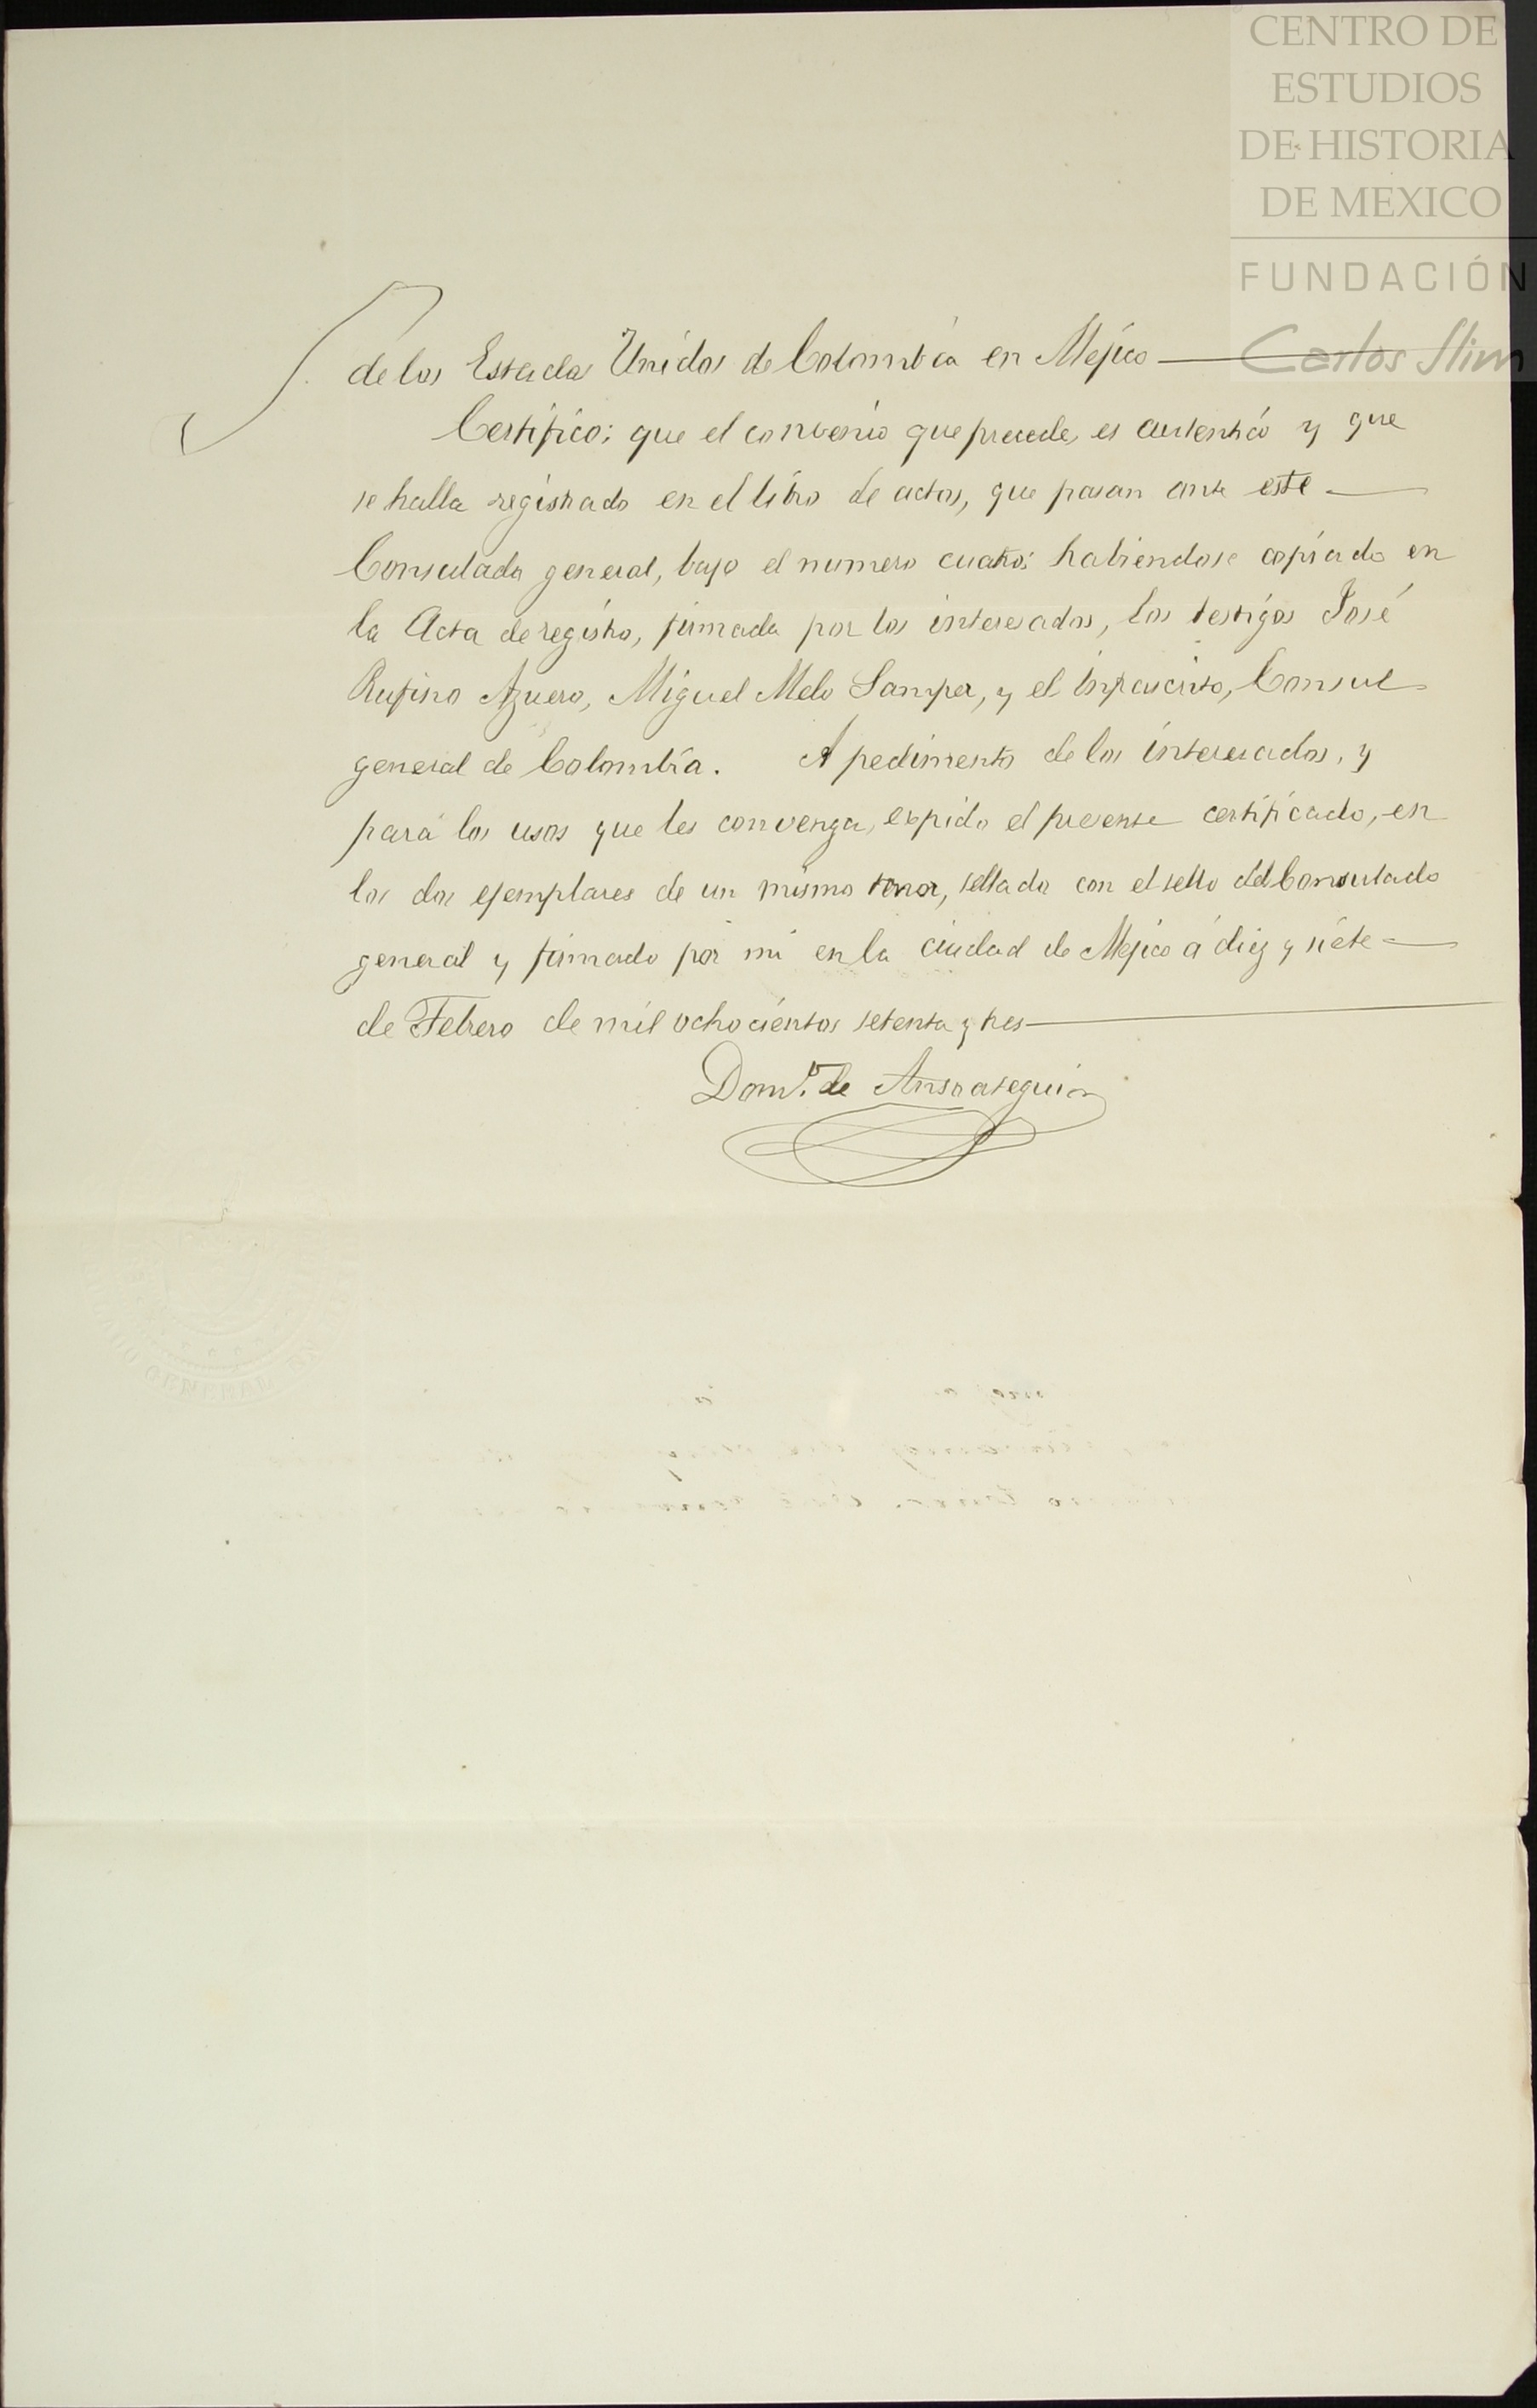 CENTRO DE
ESTUDIOS
DE HISTORIA
DE MEXICO
FUNDACIÓN
Carlos Slim
de los Estados Unidos de Colombia en Mejico
Certifico: que el convenio que precede, es autentico y que
se halla registrado en el libro de actos, que pasan ante este
Consulado general, bajo el numero cuatro: habiendose copiado en
la Acta de registro, firmada por los interesados, los testigos José
Rufino Azuero, Miguel Melo Samper, y el infrascrito, Consul
general de Colombia. A pedimento de los interesados, y
para los usos que les convenga, expido el presente certificado, en
los dos ejemplares de un mismo tenor, sellado con el sello del Consulado
general y firmado por mi en la ciudad de Mejico á diez y siete
de Febrero de mil ochocientos setenta y tres
Dom.º de Ansoategui
GENERAL EN